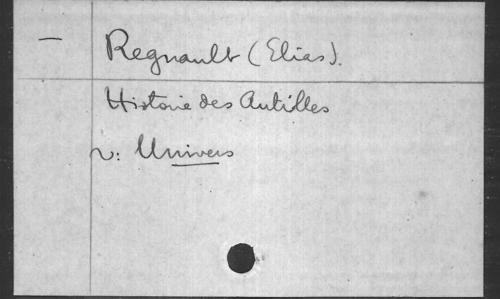 — Regnault (Elias).
Histoire des Antilles
v: Univers